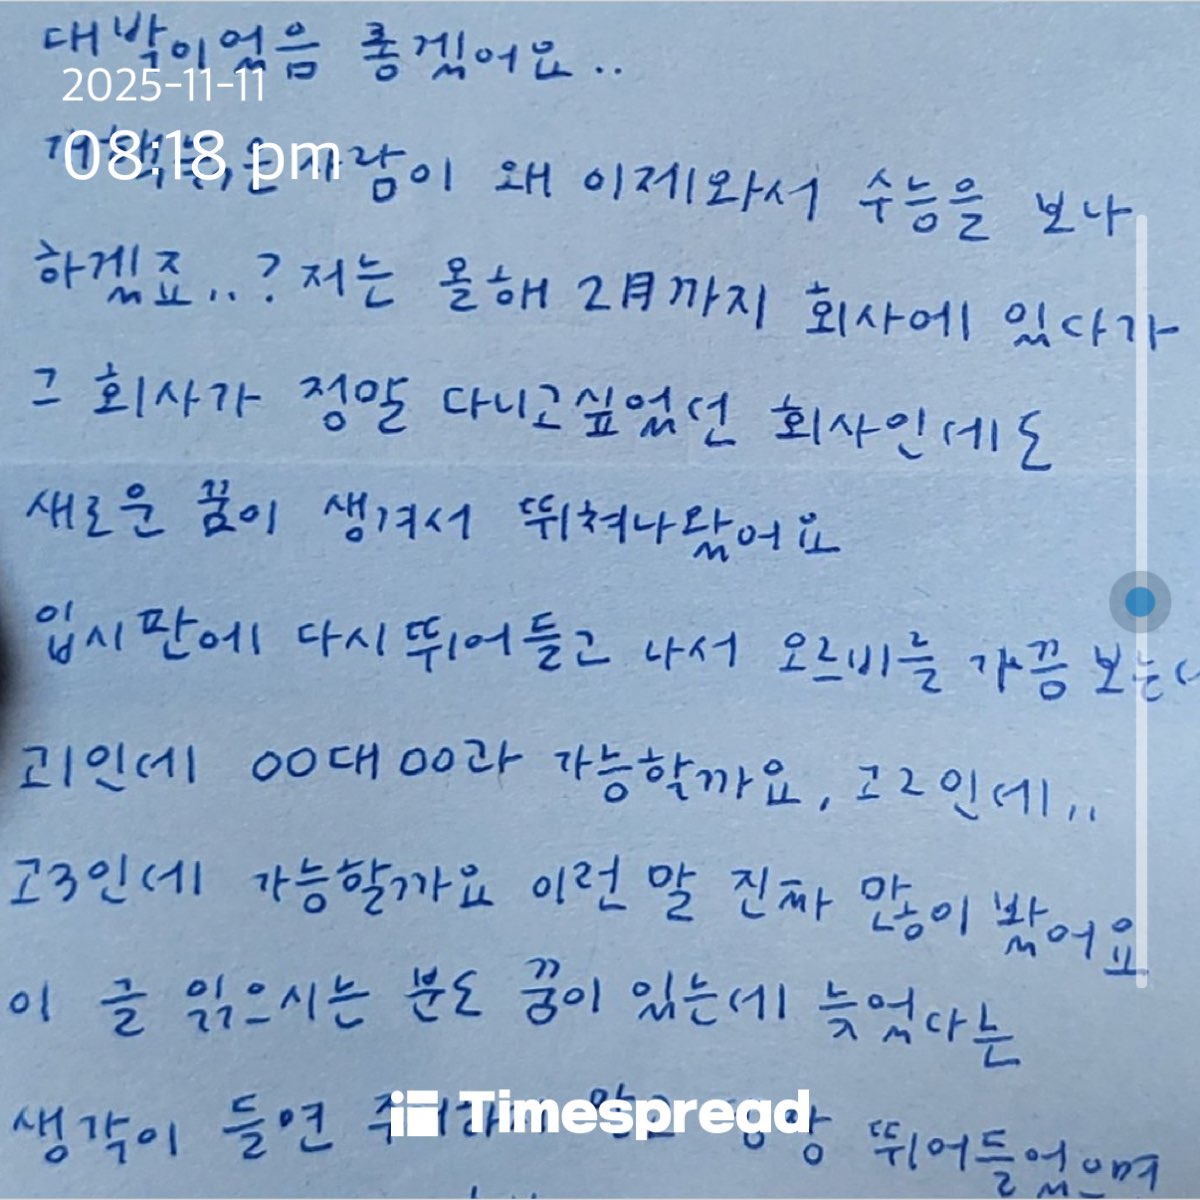 대박이었음 좋겠어요..
2025-11-11
08:18 pm
사람이 왜 이제와서 수능을 보나
하겠죠..? 저는 올해 2月까지 회사에 있다가
그 회사가 정말 다니고싶었던 회사인데도
새로운 꿈이 생겨서 뛰쳐나왔어요
입시판에 다시 뛰어들고 나서 오르비를 가끔 보는데
고1인데 00대 00과 가능할까요, 고2인데..
고3인데 가능할까요 이런 말 진짜 많이 봤어요
이 글 읽으시는 분도 꿈이 있는데 늦었다는
생각이 들면 뛰어들었으며
Timespread